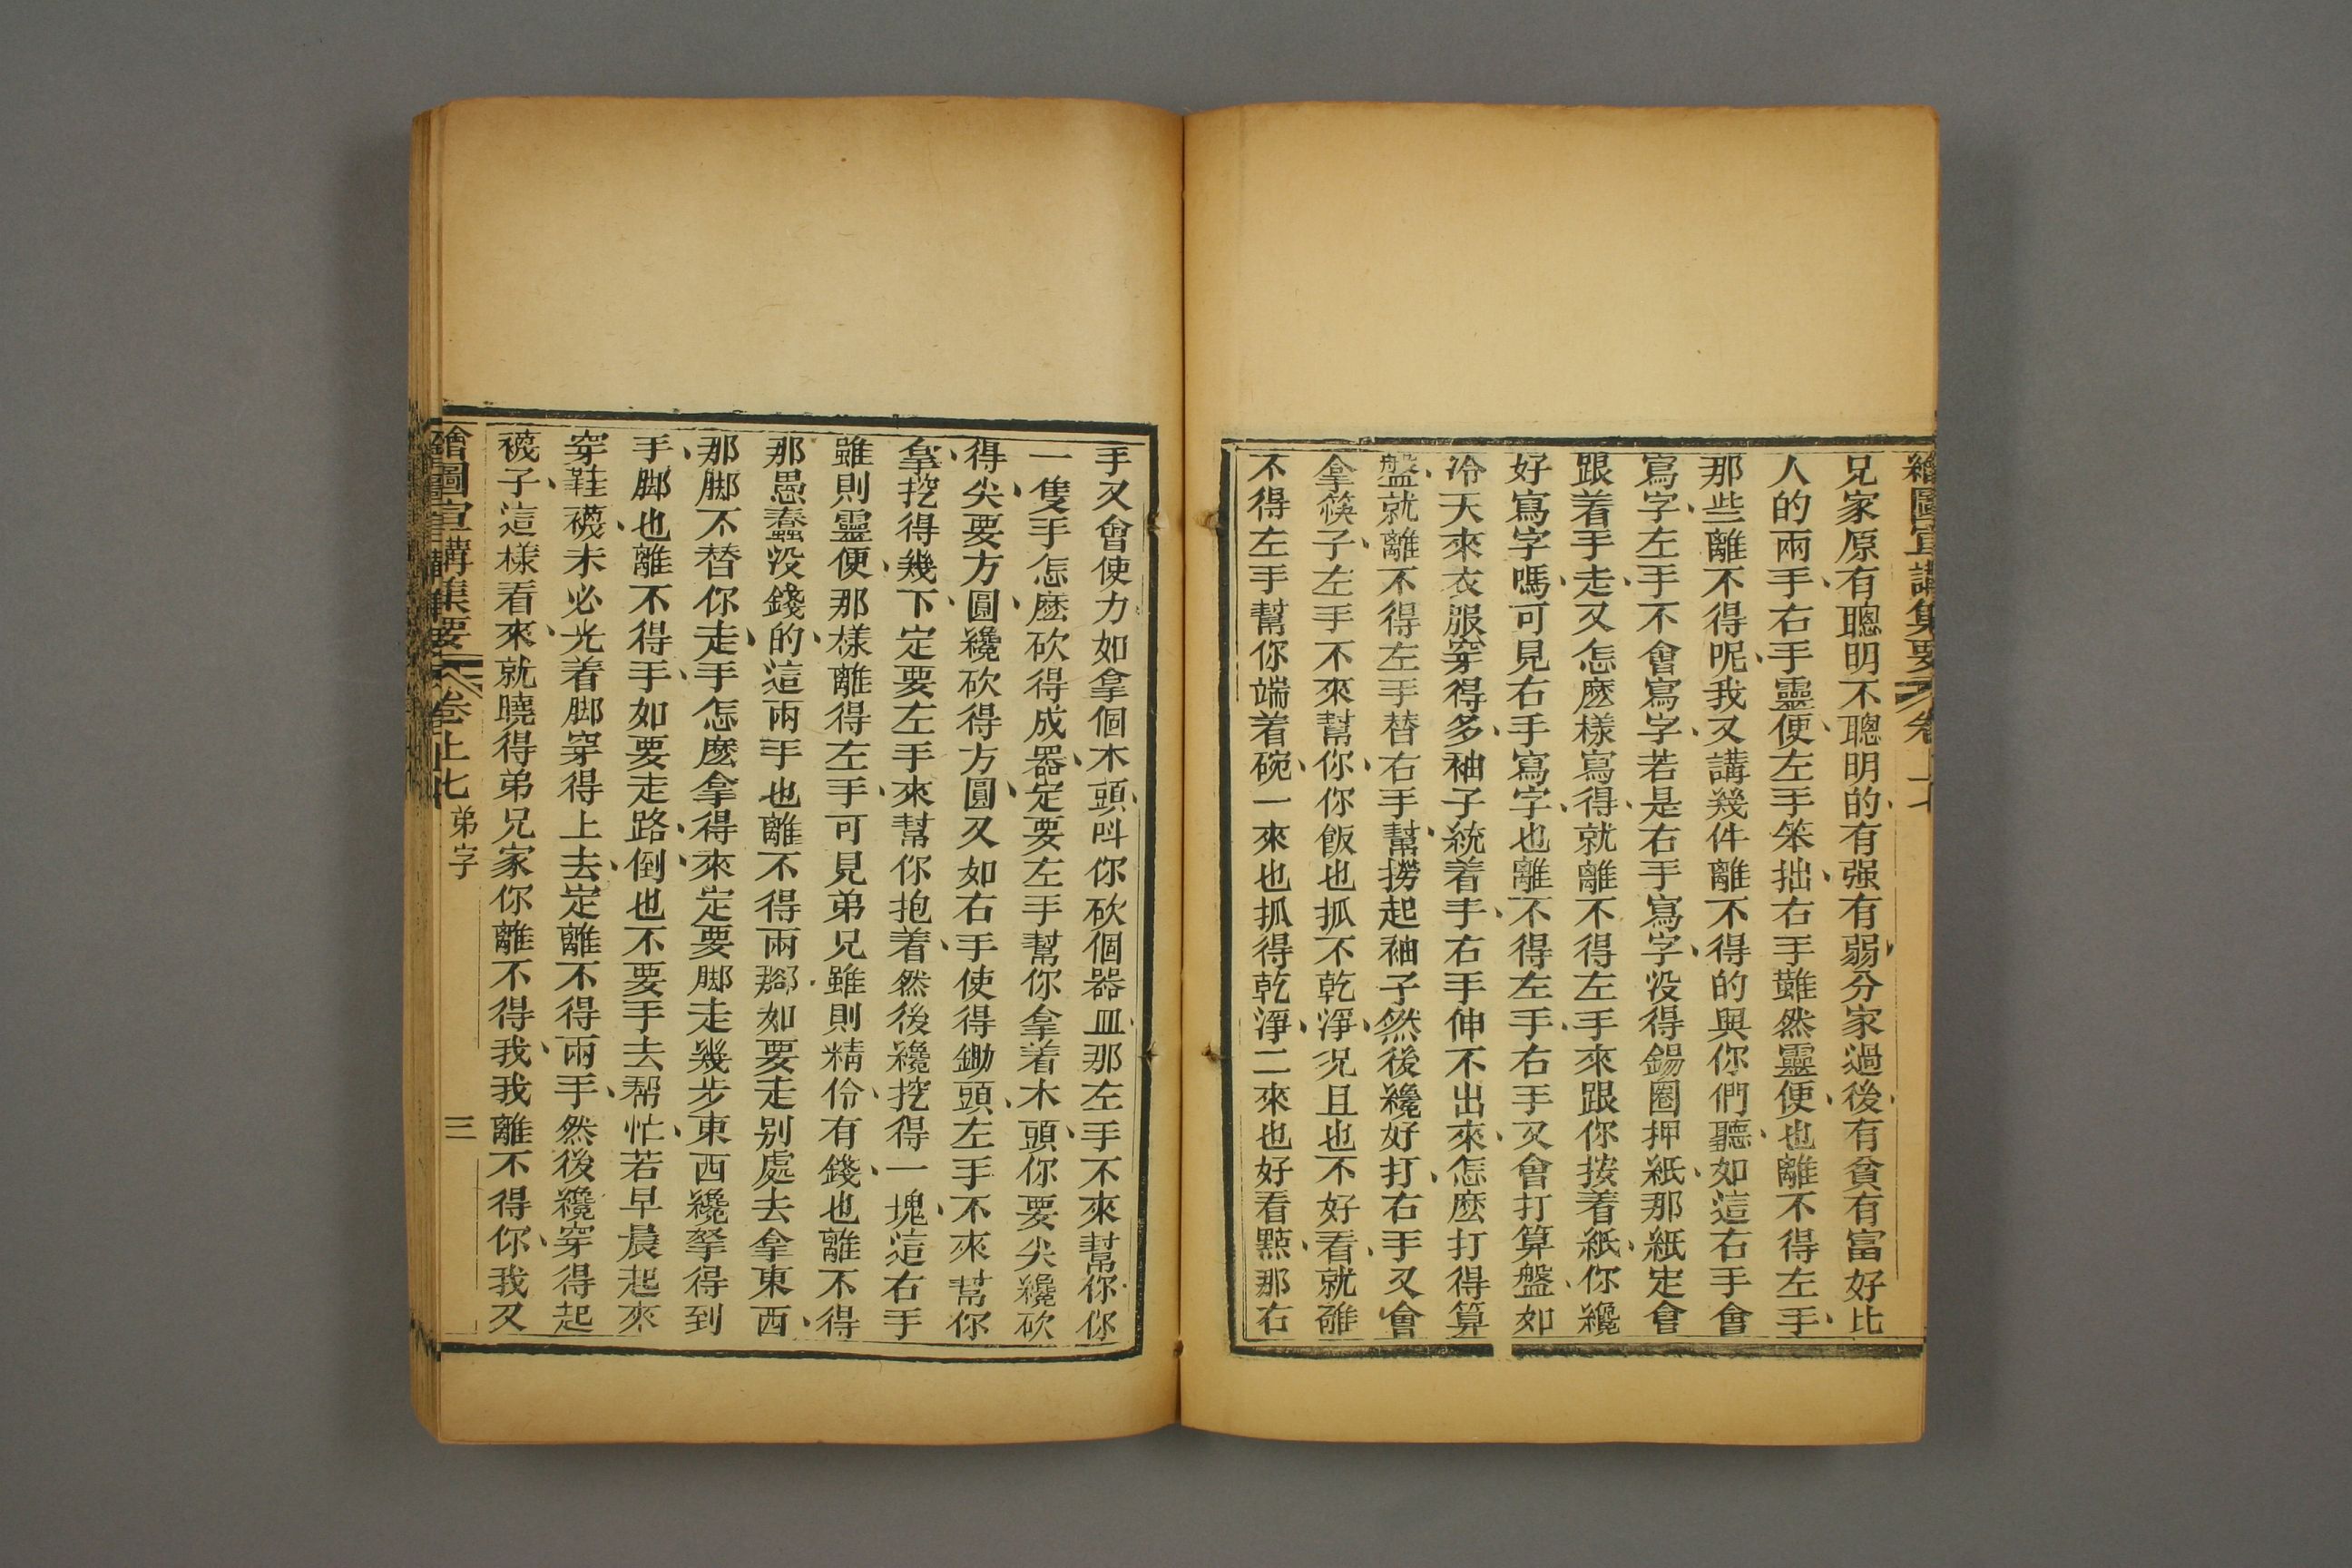 繪圖宣講集要 卷上七
兄家原有聰明不聰明的有强有弱分家過後有貧有富好比
人的兩手右手靈便左手笨拙右手雖然靈便也離不得左手
那些離不得呢我又講幾件離不得的與你們聽如這右手會
寫字左手不會寫字若是右手寫字没得鍚圈押紙那紙定會
跟着手走又怎麽樣寫得就離不得左手來跟你按着紙你纔
好寫字嗎可見右手寫字也離不得左手右手又會打算盤如
冷天來衣服穿得多袖子統着手右手伸不出來怎麽打得算
盤就離不得左手替右手幫撈起袖子然後纔好打右手又會
拿筷子左手不來幫你你飯也抓不乾淨况且也不好看就離
不得左手幫你端着碗一來也抓得乾淨二來也好看㸃那右
手又會使力如拿個木頭呌你砍個器皿那左手不來幫你你
一隻手怎麽砍得成器定要左手幫你拿着木頭你要尖纔砍
得尖要方圓纔砍得方圓又如右手使得鋤頭左手不來幫你
拿挖得幾下定要左手來幫你抱着然後纔挖得一塊這右手
雖則靈便那樣離得左手可見弟兄雖則精伶有錢也離不得
那愚蠢没錢的這兩手也離不得兩腳如要走别處去拿東西
那脚不替你走手怎麽拿得來定要脚走幾步東西纔拏得到
手脚也離不得手如要走路倒也不要手去帮忙若早晨起來
穿鞋襪未必光着脚穿得上去定離不得兩手然後纔穿得起
襪子這樣看來就曉得弟兄家你離不得我我離不得你我又
繪圖宣講集要 卷上七 弟字 三